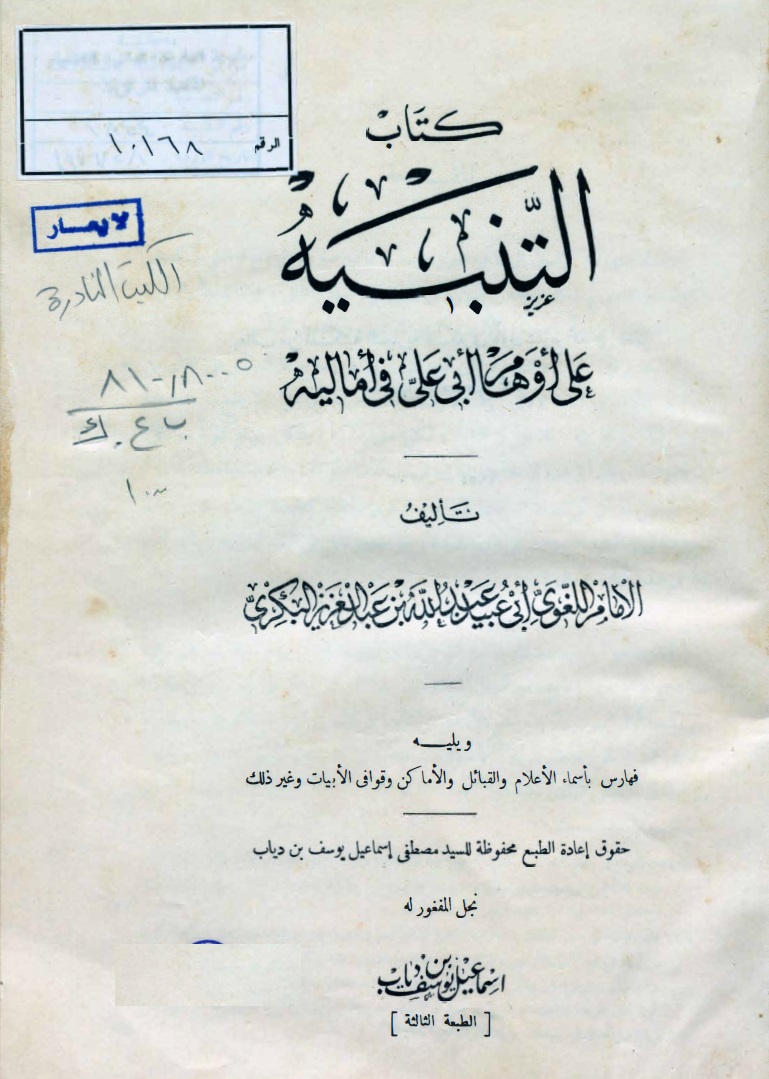 الرقم ١٠١٦٨
لا يعار
الكتب النادرة
٨١٠,٨٠٠٠٥
ب ع . ك
كتاب
التنبيه
عزيز
على أوهام أبى على فى أماليه
تأليف
الإمام اللغوى أبى عبيد عبد الله بن عبد العزيز البكرى
ويليه
فهارس بأسماء الأعلام والقبائل والأماكن وقوافى الأبيات وغير ذلك
حقوق إعادة الطبع محفوظة للسيد مصطفى إسماعيل يوسف بن دياب
نجل المغفور له
اسماعيل يوسف بن دياب
[ الطبعة الثالثة ]